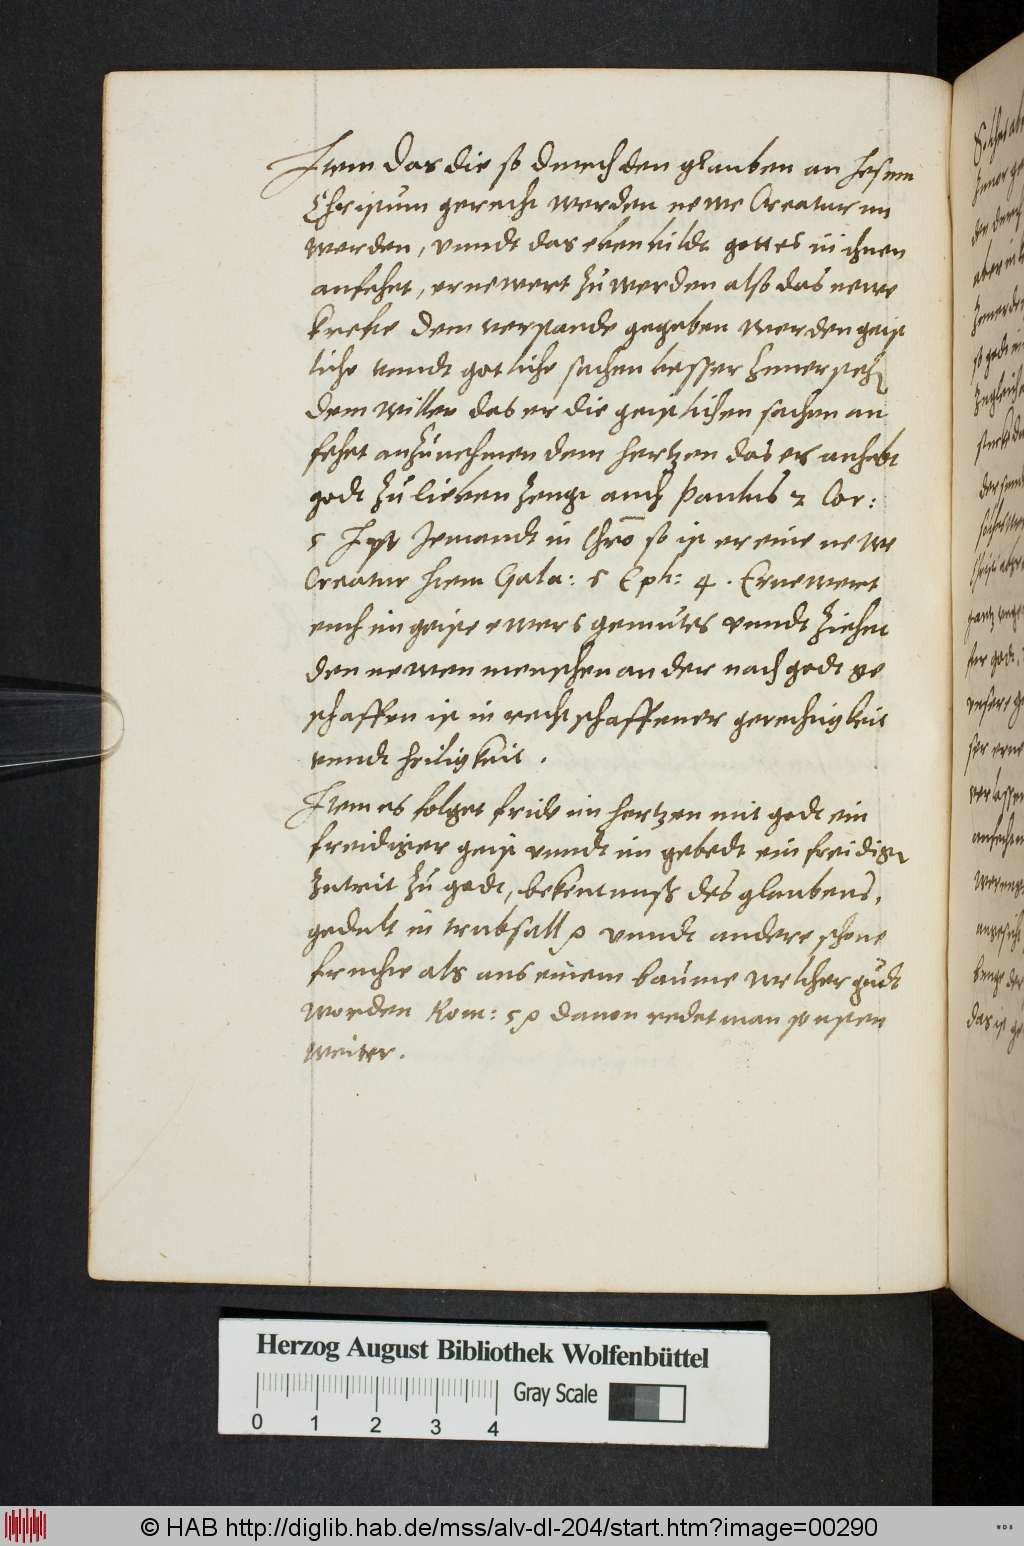 Item das die so durch den glauben an Jesum
Christum gerecht werden newe Creaturnn
werden, vnndt das ebenbildt gottes in ihnen
anfehet, ernewert zu werden also das newe
krefte dem verstande gegeben werden geist
liche vnndt gotliche sachen besser zuuersteh
dem willen das er die geistlichen sachen an
fehet anzunehmen dem hertzen das es anhebt
godt zu lieben zeugt auch Paulus 2 Cor:
5 Ist Jemandt in Chro so ist er eine newe
Creatur Item Gala: 5 Eph: 4. Ernewert
euch im geiste ewers gemutes vnndt ziehet
den newen menschen an der nach godt ge
schaffen ist in rechtschaffener gerechtigkeit
vnndt heiligkeit.
Item es folget fride im hertzen mit godt ein
freidiger geist vnndt im gebedt ein freidig
zutrit zu godt, bekentnuss des glaubens,
gedult in trubsall vnndt andere schone
fruchte als aus einem baume welcher gudt
worden Rom: 5 dauon redet man sonsten
weiter.
Herzog August Bibliothek Wolfenbüttel
Gray Scale
0 1 2 3 4
© HAB http://diglib.hab.de/mss/alv-dl-204/start.htm?image=00290